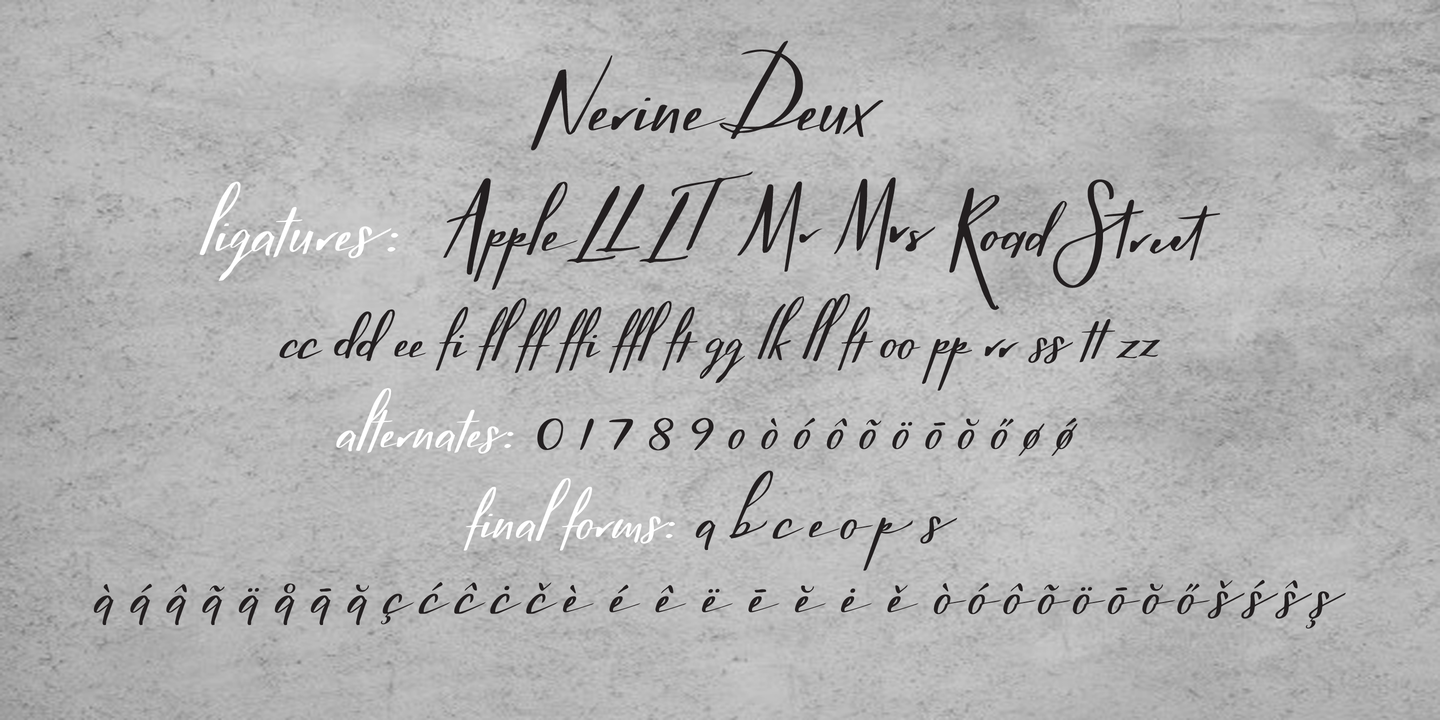 Nerine Deux
ligatures: Apple LL LT Mr Mrs Road Street
cc dd ee fi fl ff ffi ffl ft gg lk ll ft oo pp rr ss tt zz
alternates: 0 1 7 8 9 o ò ó ô õ ö ō ŏ ő ø ǿ
final forms: a b c e o p s
à á â ã ä å ā ă ç ć ĉ ċ č è é ê ë ē ĕ ė ě ò ó ô õ ö ō ŏ ő š ś ŝ ş